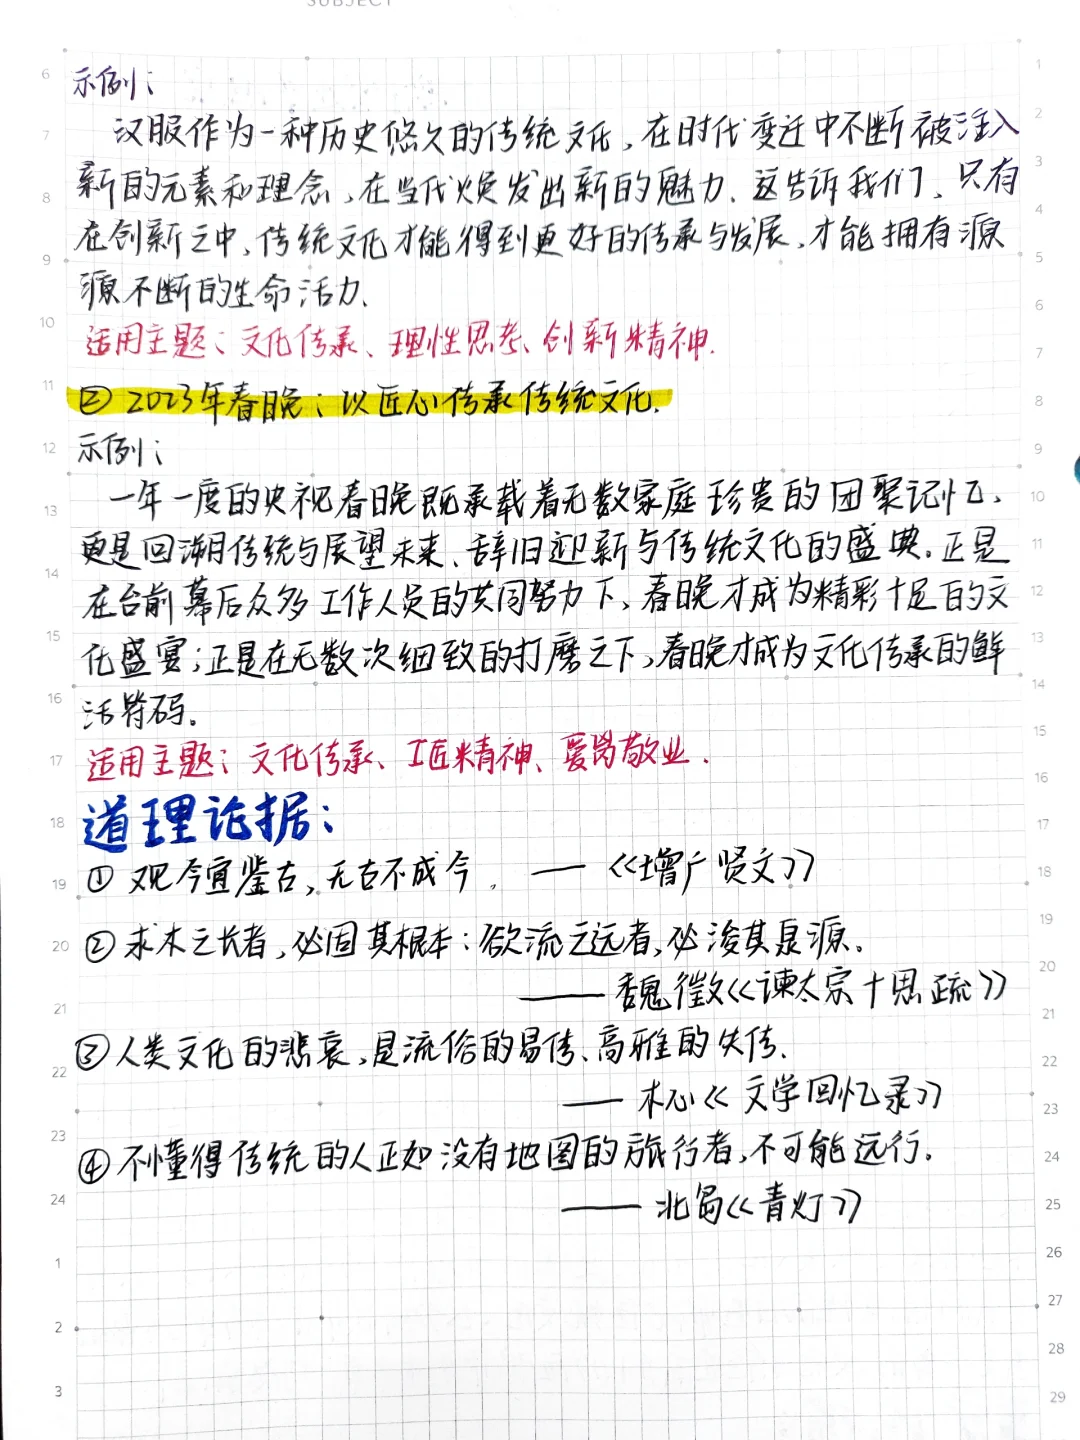 SUBJECT
示例:
汉服作为一种历史悠久的传统文化,在时代变迁中不断被注入
新的元素和理念,在当代焕发出新的魅力.这告诉我们,只有
在创新之中,传统文化才能得到更好的传承与发展,才能拥有源
源不断的生命活力.
适用主题:文化传承、理性思考、创新精神.
② 2023年春晚:以匠心传承传统文化.
示例:
一年一度的央视春晚既承载着无数家庭珍贵的团聚记忆,
更是回溯传统与展望未来、辞旧迎新与传统文化的盛典.正是
在台前幕后众多工作人员的共同努力下,春晚才成为精彩十足的文
化盛宴;正是在无数次细致的打磨之下,春晚才成为文化传承的鲜
活符码。
适用主题:文化传承、工匠精神、爱岗敬业.
道理论据:
① 观今宜鉴古,无古不成今. ——《增广贤文》
② 求木之长者,必固其根本:欲流之远者,必浚其泉源。
——魏徵《谏太宗十思疏》
③ 人类文化的悲哀,是流俗的易传、高雅的失传.
——木心《文学回忆录》
④ 不懂得传统的人正如没有地图的旅行者,不可能远行.
——北岛《青灯》